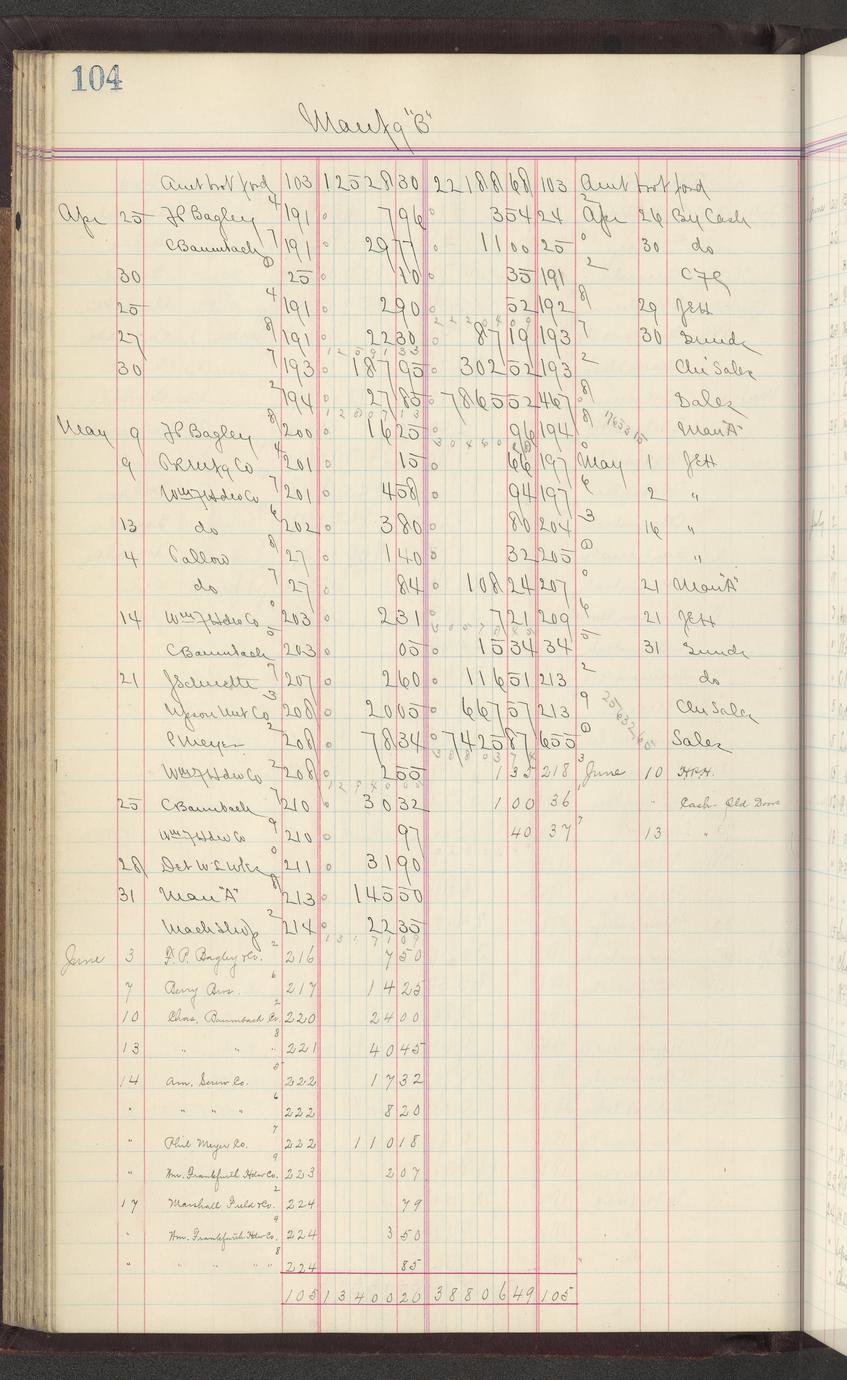 104
Manfg "B"
Amt brot ford 103 12528 30 22188 68 103 Amt brot ford
Apr 25 JP Bagley 4 191 7 96 3 54 24 2 Apr 26 By Cash
C Baumbach 7 191 29 77 11 00 25 0 30 do
30 0 25 10 35 191 2
25 4 191 2 90 52 192 8 29 JEH
27 8 191 22 30 87 19 193 7 30 Sunds
30 7 193 187 95 302 52 193 2 Chi Sales
2 194 27 85 7865 52 467 8 Sales
May 9 JP Bagley 8 200 16 25 96 194 8 Man "A"
9 Mnfg Co 4 201 15 66 197 0 May 1 JEH
Wm F Hdw Co 7 201 4 58 94 197 6 2 "
13 do 6 202 3 80 80 204 3 16 "
4 Pallow 8 27 1 40 32 205 0 "
do 7 27 84 108 24 207 0 21 Man "A"
14 Wm F Hdw Co 0 203 2 31 7 21 209 6 21 JEH
C Baumbach 5 203 05 15 34 34 5 31 Sunds
21 J Schuette 7 207 2 60 116 51 213 2 do
Upson Nut Co 3 208 20 05 667 57 213 9 Chi Sales
P Meyer 2 208 78 34 7425 87 655 0 Sales
Wm F Hdw Co 2 208 2 55 1 35 218 3 June 10 H.P.H.
25 C Baumbach 7 210 30 32 1 00 36 1 " Cash - Old Doors
Wm F Hdw Co 9 210 97 40 37 7 13 "
28 Det W L Wks 0 211 31 90
31 Man "A" 8 213 145 50
Mach Shop 2 214 22 35
June 3 J. P. Bagley & Co. 2 216 7 50
7 Berry Bros. 6 217 14 25
10 Chas. Baumbach Co. 2 220 24 00
13 " " " 8 221 40 45
14 Am. Screw Co. 5 222 17 32
" " " " 6 222 8 20
" Phil Meyer Co. 7 222 110 18
" Wm. Frankfurth Hdw Co. 9 223 2 07
17 Marshall Field & Co. 2 224 79
" Wm. Frankfurth Hdw Co. 9 224 3 50
" " " " " 8 224 85
105 13400 20 38806 49 105